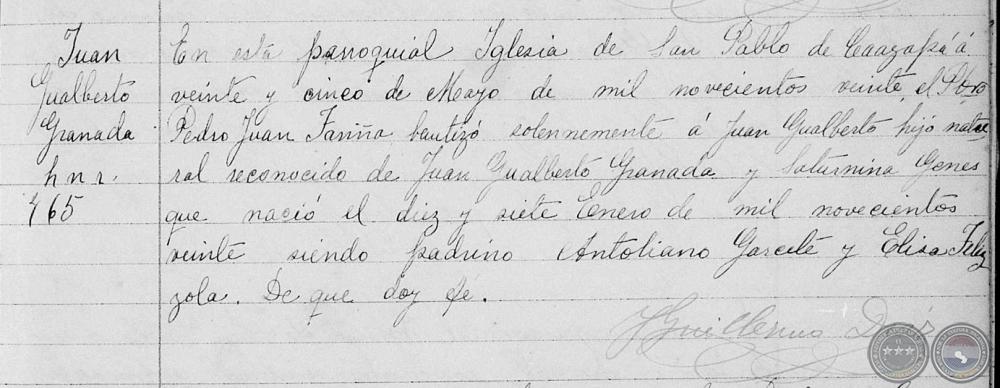 Juan
Gualberto
Granada
h n r.
465
En esta parroquial Iglesia de San Pablo de Caazapá á
veinte y cinco de Mayo de mil novecientos veinte, el Pbro
Pedro Juan Fariña bautizó solennemente á Juan Gualberto hijo natu
ral reconocido de Juan Gualberto Granada y Saturnina Genes
que nació el diez y siete Enero de mil novecientos
veinte siendo padrino Antoliano Garcete y Elisa Feliz
zola. De que doy fé.
Guillermo